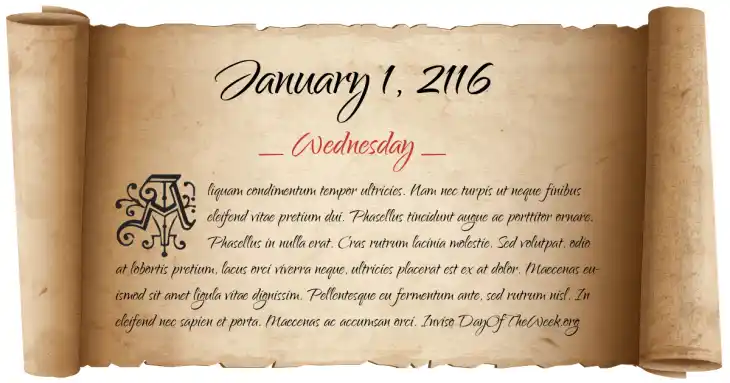 January 1, 2116
_ Wednesday _
Aliquam condimentum tempor ultricies. Nam nec turpis ut neque finibus
eleifend vitae pretium dui. Phasellus tincidunt augue ac porttitor ornare.
Phasellus in nulla erat. Cras rutrum lacinia molestie. Sed volutpat, odio
at lobortis pretium, lacus orci viverra neque, ultricies placerat est ex at dolor. Maecenas eu-
ismod sit amet ligula vitae dignissim. Pellentesque eu fermentum ante, sed rutrum nisl. In
eleifend nec sapien et porta. Maecenas ac accumsan orci. Inviso DayOfTheWeek.org